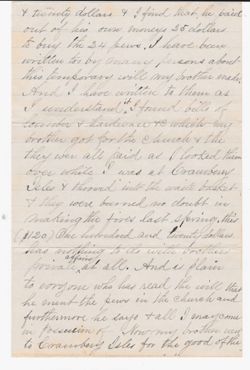 & twenty dollars & I find that he paid
out of his own moneys 28 dollars
to buy the 24 pews. I have been
written to by many persons about
this temporary will my brother made.
And I have written to them as
I understand it. I found bills of
Lumber & Hardware &c which my
brother got for the church & the
they were all paid as I looked them
over while I was at Cranberry
Isles & throwed into the waste basket
& they were burned no doubt in
making the fires last Spring. This
($120) One hundred and twenty dollars
has nothing to do with brothers
private affairs at all. And is plain
to everyone who has read the will that
he ment the pews in the church and
furthermore he says & all I may come
in possession of. Now my brother went
to Cranberry Isles for the good of the